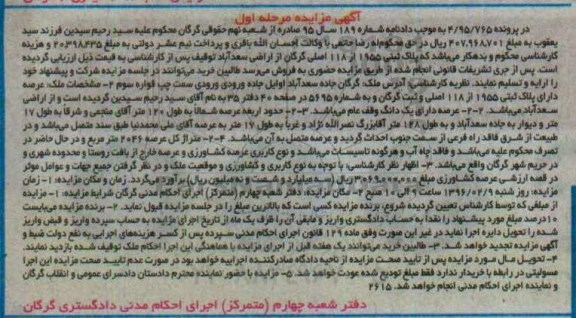 آگهی مزایده مرحله اول
در پرونده ۴/۹۵/۷۶۵ به موجب دادنامه شماره ۱۸۹ سال ۹۵ صادره از شعبه نهم حقوقی گرگان محکوم علیه سید رحیم سیدین فرزند سید
یعقوب به مبلغ ۴۰۷.۹۶۸.۷۰۱ ریال در حق محکوم له رضا حاتمی با وکالت احسان الله باقری و پرداخت نیم عشر دولتی به مبلغ ۲۰۳۹۸۴۳۵ و هزینه
کارشناسی محکوم و بدهکار می‌باشد که پلاک ثبتی ۱۹۵۵ از ۱۱۸ اصلی گرگان از اراضی سعدآباد توقیف پس از کارشناسی به قیمت ذیل ارزیابی گردیده
است. پس از جری تشریفات قانونی انجام شده از طریق مزایده حضوری به فروش می‌رسد طالبین خرید می‌توانند در جلسه مزایده شرکت و پیشنهاد خود
را ارایه و تسلیم نمایند. نظریه کارشناسی: آدرس ملک: گرگان جاده سعدآباد اوایل جاده ورودی ورودی سمت چپ قواره سوم ۲- مشخصات ملک: عرصه
دارای پلاک ثبتی ۱۹۵۵ از ۱۱۸ اصلی و ثبت گرگان و به شماره ۵۶۹۵ در صفحه ۴۰ دفتر ۳۵ به نام آقای سید رحیم سیدین گردیده است و از اراضی
سعدآباد می‌باشد. ۲-۲- عرصه دارای یک دانگ وقف عام می‌باشد. ۲-۳- حدود اربعه عرصه شمالاً به طول ۱۲۰ متر آقای منجمی و شرقاً به طول ۱۷
متر و دیوار به جاده سعدآباد و به طول ۱۲۸ متر آقابزرگ نصرالله نژاد و غرباً به طول ۱۷ متر به عرصه آقای علی محمدنیا طبق سند متصل می‌باشد و در
طبیعت از شرق فاقد راه فرعی از سمت جنوب احداث گردید و عرصه متصل به آن می‌باشد. ۲-۴- متراژ کل عرصه ۲۰۴۶ متر مربع و در حال حاضر در
تصرف محکوم علیه می‌باشد و فاقد چاه آب و هرگونه تاسیسات می‌باشد و نوع کاربری عرصه کشاورزی و عرصه خارج از بافت روستا و محدوده شهری و
در حریم شهر گرگان واقع می‌باشد. ۳- اظهار نظر کارشناسی: با توجه به نوع کاربری و کشاورزی و موقعیت ملک و در نظر گرفتن جمیع جهات و عوامل موثر
در قصه ارزشی عرصه کشاورزی مبلغ ۳.۰۶۹.۰۰۰.۰۰۰ ریال (سه میلیارد و شصت و نه میلیون ریال) برآورد می‌گردد. زمان و مکان مزایده: ۱- زمان
مزایده: روز شنبه ۱۳۹۶/۰۲/۹ ساعت ۹ الی ۱۰ صبح ۲- مکان مزایده: دفتر شعبه چهارم (متمرکز) اجرای احکام مدنی گرگان شرایط مزایده: ۱- مزایده
از مبلغی که توسط کارشناس تعیین گردیده شروع، برنده مزایده کسی است که بالاترین مبلغ را در جلسه مزایده قبول نماید. ۲- برنده مزایده می‌بایست
۱۰ درصد مبلغ مورد پیشنهاد را نقداً به حساب دادگستری واریز و مابقی آن را ظرف یک ماه از تاریخ اجرای مزایده به حساب سپرده واریز و قبض واریز
شده را تحویل دایره اجرا نماید در غیر این صورت وفق ماده ۱۲۹ قانون اجرای احکام مدنی سپرده پس از کسر هزینه‌های اجرایی به نفع دولت ضبط و
آگهی مزایده تجدید خواهد شد. ۳- طالبین خرید می‌توانند یک هفته قبل از اجرای مزایده با هماهنگی این اجرا احکام ملک توقیف شده بازدید نمایند.
۴- تحویل مال مورد مزایده پس از تایید صحت مزایده از ناحیه دادگاه صادرکننده اجراییه خواهد بود در صورت عدم تایید صحت مزایده این اجرا
مسولیتی در رابطه با خریدار ندارد فقط مبلغ تودیع شده عودت خواهد شد. ۵- مزایده با حضور نماینده محترم دادستان دادسرای عمومی و انقلاب گرگان
و نماینده اجرای احکام مدنی انجام خواهد شد. ۲۶۱۵
دفتر شعبه چهارم (متمرکز) اجرای احکام مدنی دادگستری گرگان